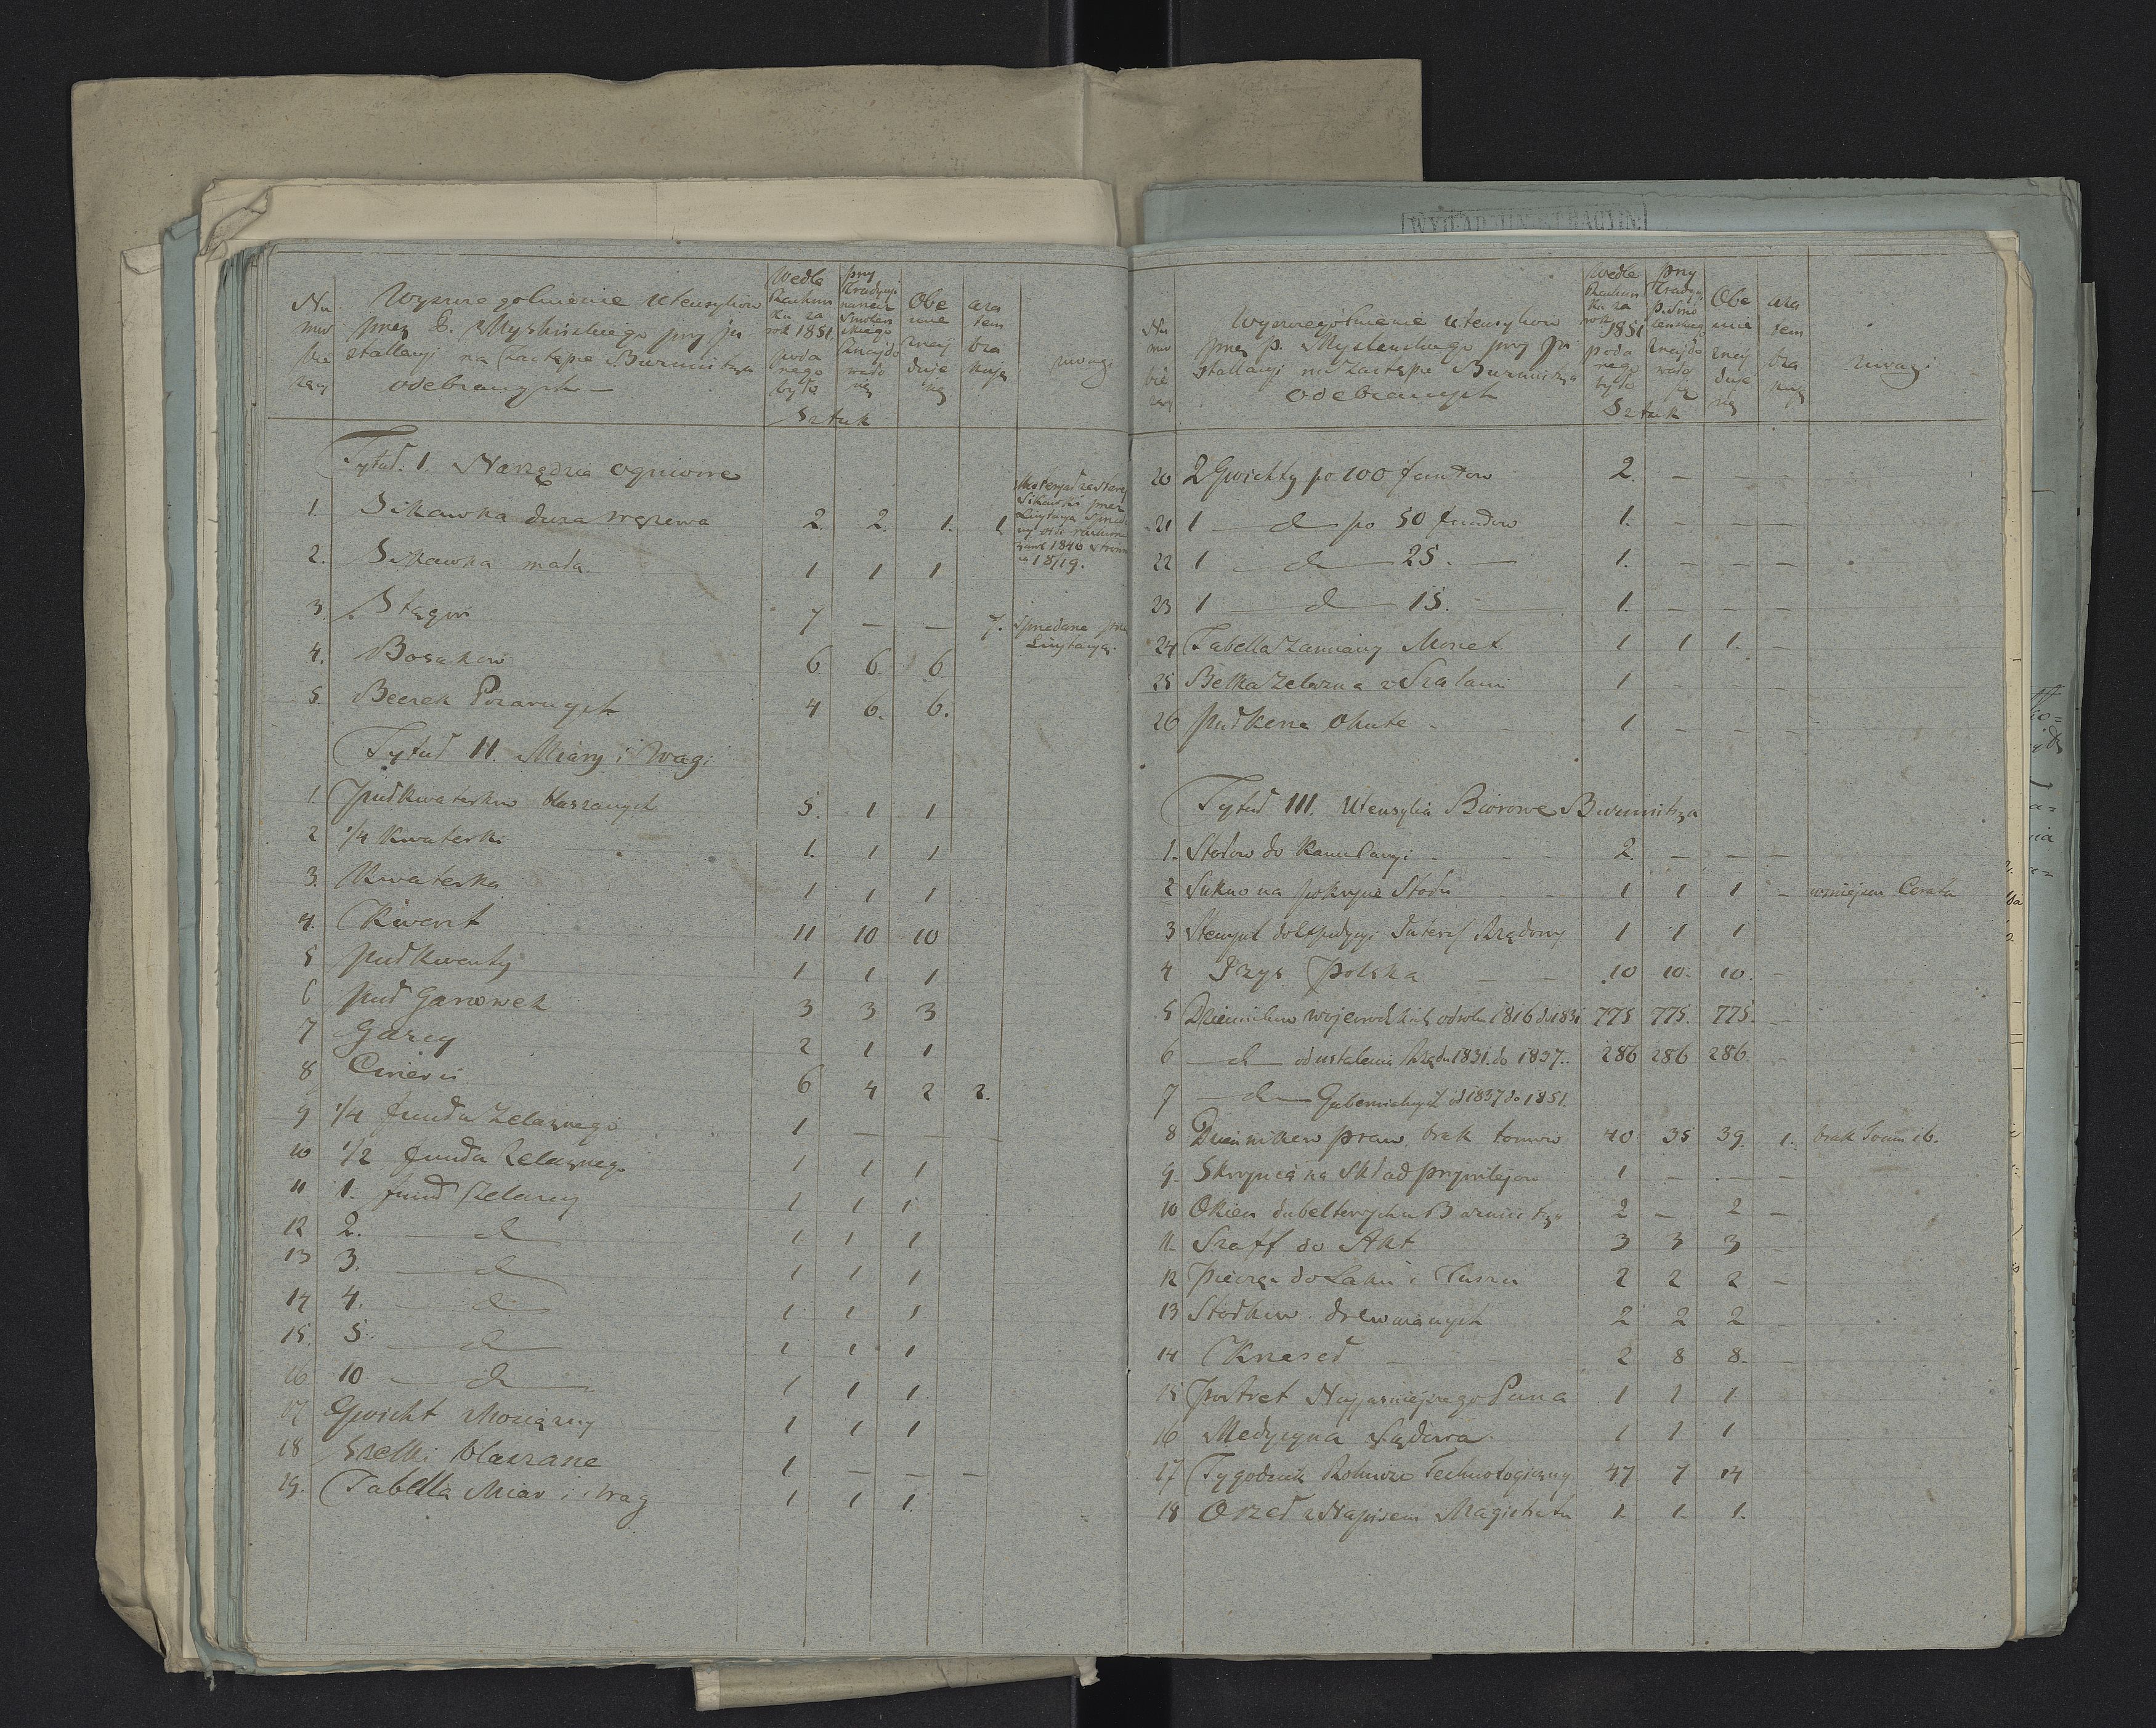 Nu
mer
bie
żący
Wyszczególnienie utensyliów
przez P. Myślińskiego przy in
stallacyi na Zastępcę Burmistrza
odebranych —
Wedle
Rachun
ku za
rok 1851
poda
nego
było
przy
tradycyi
Smoleń
skiego
znajdo
wało
się
Sztuk
Obe
cnie
znaj
duje
się
zra
tem
bra
kuje
uwagi
Tytuł. I. Narzędzia ogniowe
1. Sikawka duża wężewa 2 2. 1. 1
Sikawki przez
Licytacyą
1846
18/19.
2. Sikawka mała 1 1 1
3. Stągwi 7 — — 7. Sprzedane przez
Licytacyą.
4. Bosaków 6 6. 6.
5. Beczek Pożarnych 4 6. 6.
Tytuł II. Miary i Wagi
1. Półkwaterków blaszanych 5. 1 1
2 1/4 Kwaterki 1. 1 1
3. Kwaterka 1 1 1
4. Kwart 11 10 10
5 Pułkwarty 1 1 1
6 Puł Garcowek 3 3 3
7 Garcy 2 1 1
8 Cwierci 6 4 2 2.
9 1/4 funda Żelaznego 1 — — —
10 1/2 funda Żelaznego 1 1 1
11 1. fund Żelazny 1 1 1
12 2. — d — 1 1 1
13 3. — d — 1 1 1
14 4. — d — 1 1 1
15. 5. — d — 1 1 1
16 10 — d — 1 1 1.
17 Gwicht Mosiężny 1 1 1
18 Szelki blaszane 1 — — —
19. Tabella Miar i Wag 1 1 1.
Nu
mer
bie
żący
Wyszczególnienie utensyliow
przez p. Myslenskiego przy in
stallacyi na Zastępcę Burmistrza
odebranych
Wedle
Rachun
ku za
rok 1851
poda
nego
było
przy
tradycyi
p. Smo
leńskiego
znajdo
wało
się
Sztuk
Obe
cnie
znaj
duje
się
zra
tem
bra
kuje
uwagi
20 2 Gwichty po 100 funtow 2. — — —
21 1 — d — po 50 funtow 1. — — —
22 1 — d — 25. — 1. — — —
23 1 — d — 15. — 1. — — —
24 Tabella Zamiany Monet 1 1 1. —
25 Belka Żelazna z Szalami 1 — — —
26 Pudkene Okute 1 — — —
Tytuł III. Utensylia Biorowe Burmistrza
1. Stołow do Kancellaryi 2. — — —
2 Sukno na pokrycie Stołu 1 1 1 — wmiejscu Cerata
3 Stempel do Expedycyi Interes Rządowy 1 1 1
4 Pczyt Polska 10 10. 10. —
5 Dzienników wojewodzkich od roku 1816 do 1831 775 775. 775. —
6 — d — od ustalenia Rządu 1831. do 1837. 286 286 286. —
7 — d — Gubernialnych od 1837 do 1851.
8 Dzienników praw brak tomow 40 35 39. 1. brak Tomu 16.
9. Skrzynia na Skład przywilejow 1 — — —
10 Okien dubeltowych u Burmistrza 2 — 2 —
11. Szaff do Akt 3 3 3 —
12 Pieczęć do Laku i Tuszu 2 2 2 —
13 Stołkow drewnianych 2 2 2 —
14 Krzeseł — 2 8 8. —
15 Portret Najjaśniejszego Pana 1 1 1
16 Medycyna Sądowa 1 1 1
17 Tygodnik Rolniczo Technologiczny 47 7 14
18 Orzeł z Napisem Magistratu 1 1. 1.